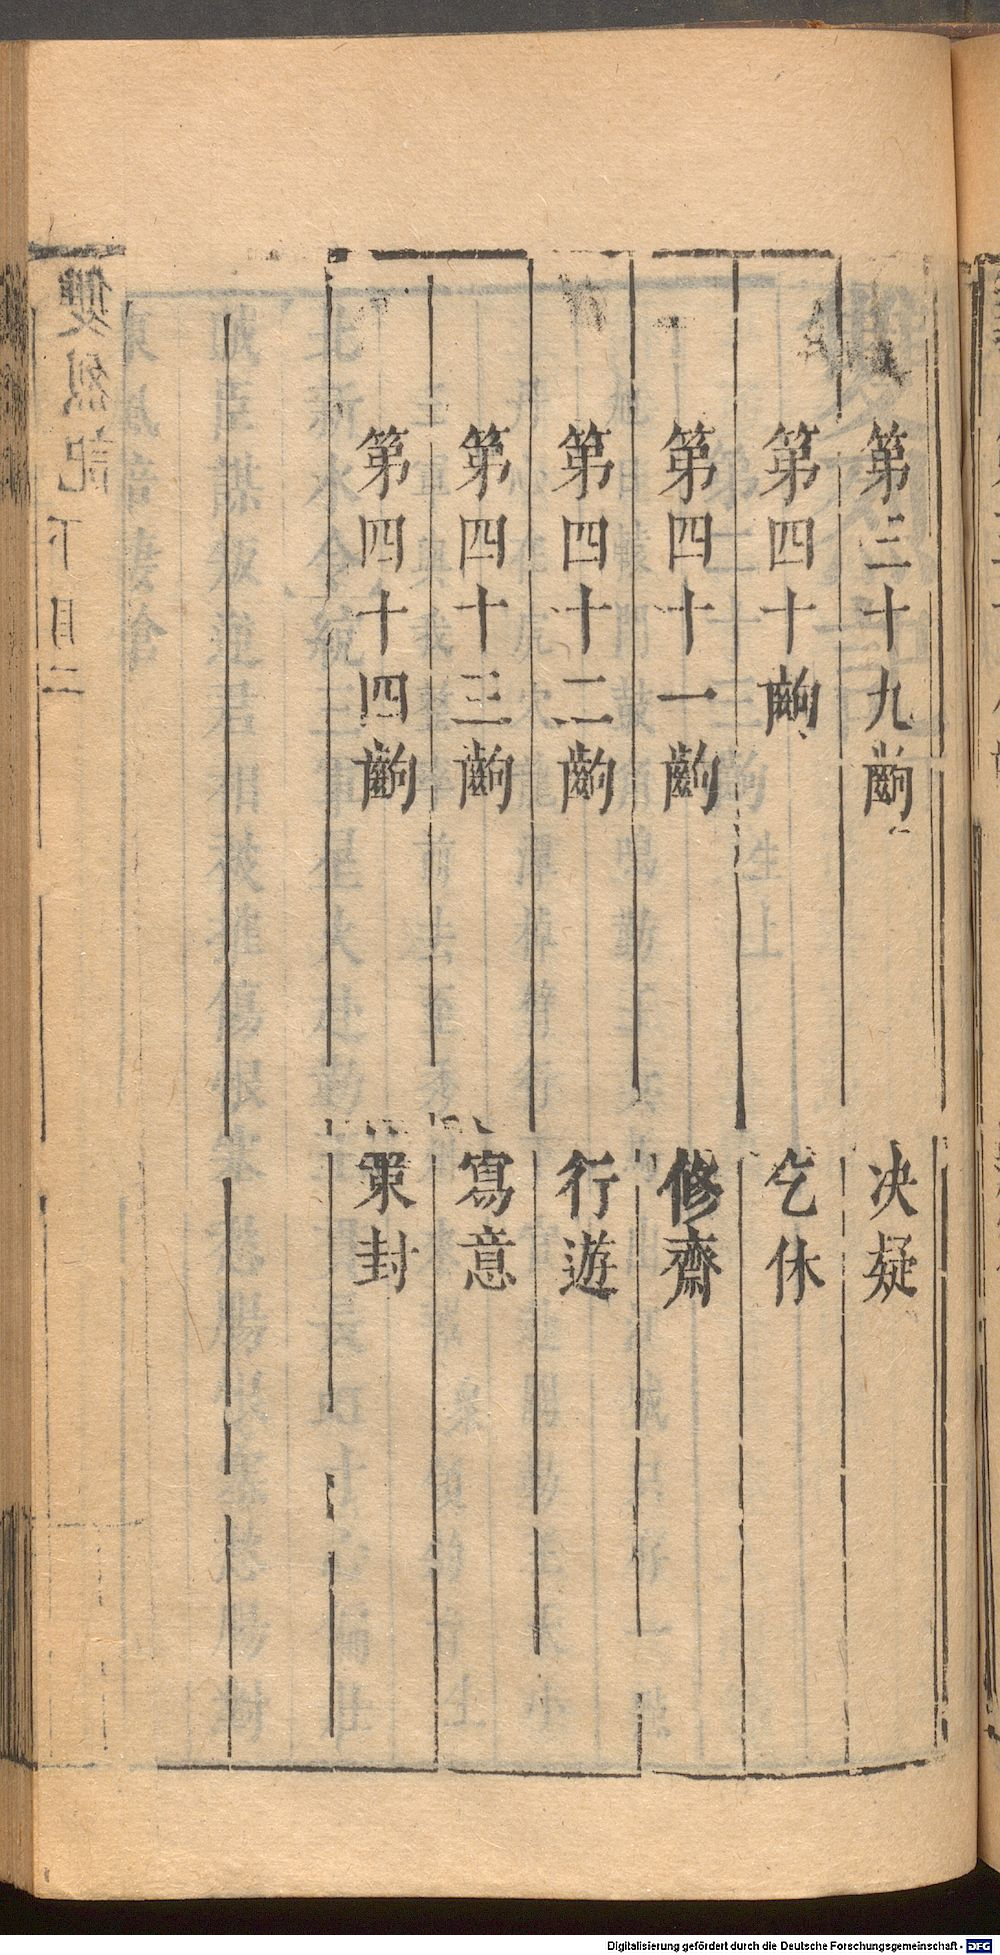 第三十九齣 决疑
第四十齣 乞休
第四十一齣 修齋
第四十二齣 行遊
第四十三齣 寫意
第四十四齣 策封
雙烈記 下目 二
Digitalisierung gefördert durch die Deutsche Forschungsgemeinschaft - DFG